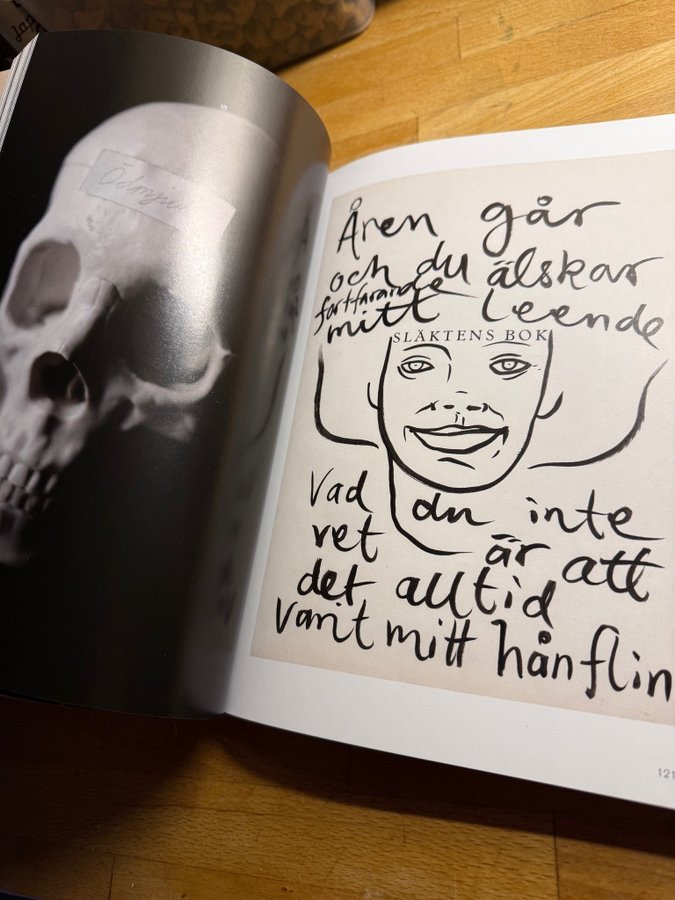 Ödmju
Åren går
och du älskar
fortfarande
mitt leende
SLÄKTENS BOK
Vad du inte
vet är att
det alltid
varit mitt hånflin
121